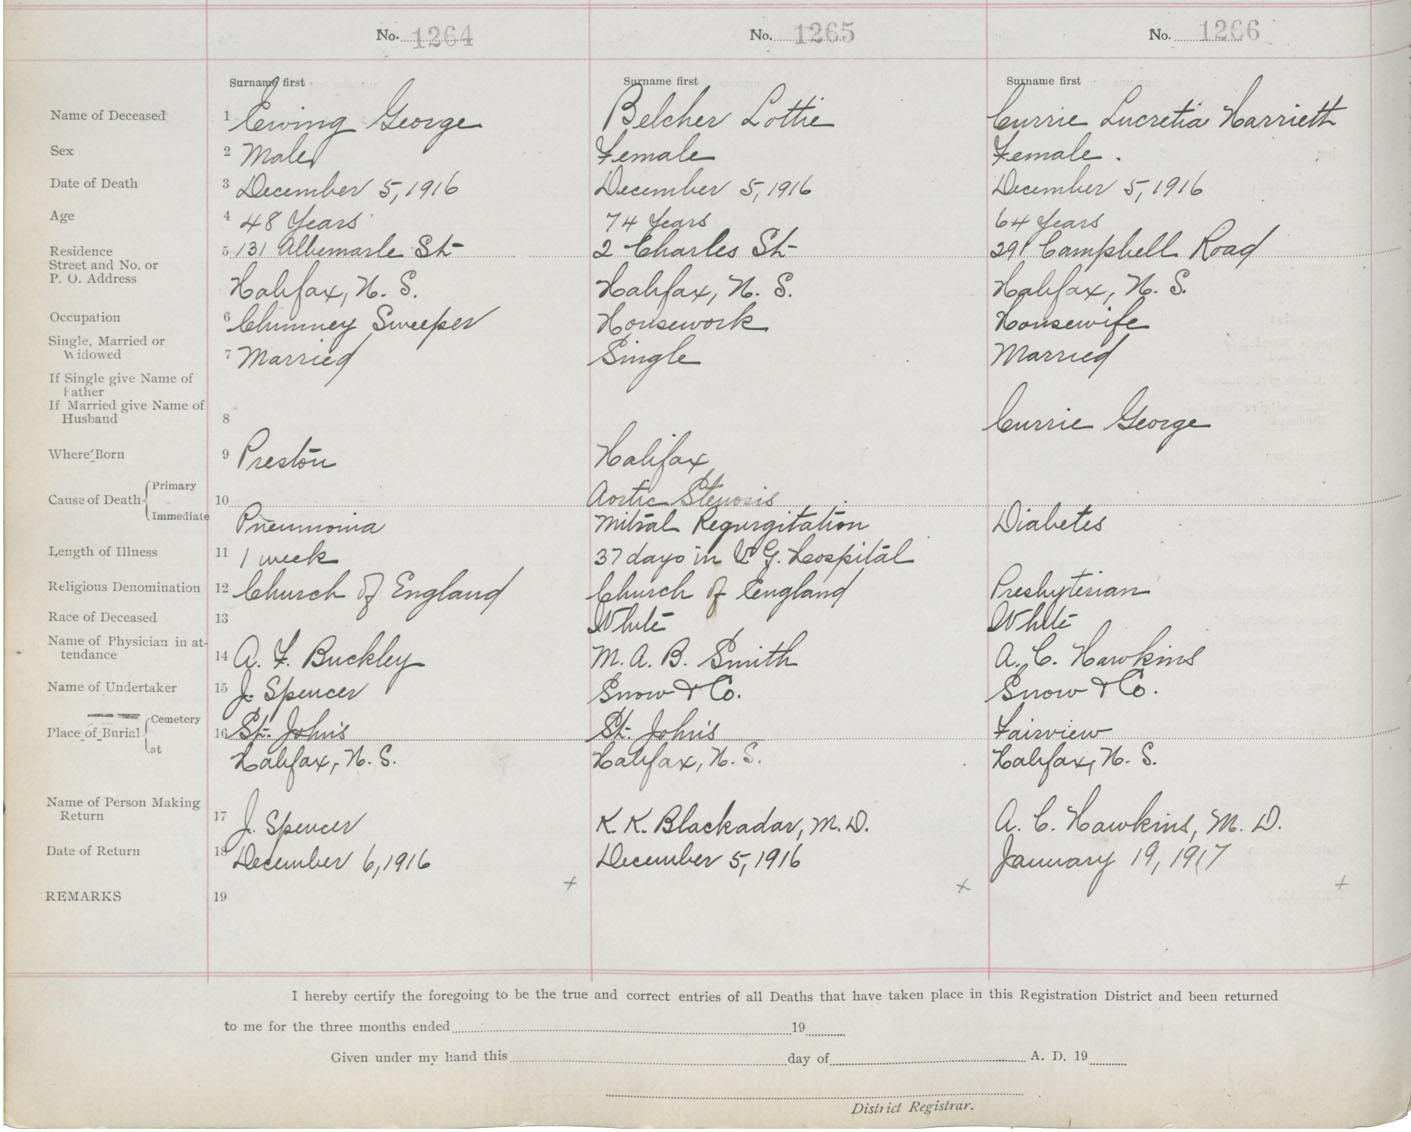 No. 1264 No. 1265 No. 1266
Surname first Surname first Surname first
Name of Deceased 1 Ewing George Belcher Lottie Currie Lucretia Harriett
Sex 2 Male Female Female.
Date of Death 3 December 5, 1916 December 5, 1916 December 5, 1916
Age 4 48 Years 74 Years 64 Years
Residence 5 131 Albemarle St 2 Charles St 291 Campbell Road
Street and No. or
P. O. Address Halifax, N. S. Halifax, N. S. Halifax, N. S.
Occupation 6 Chimney Sweeper Housework Housewife
Single, Married or
Widowed 7 Married Single Married
If Single give Name of
Father
If Married give Name of
Husband 8 Currie George
Where Born 9 Preston Halifax
Cause of Death Primary 10 Aortic Stenosis
Immediate Pneumonia Mitral Regurgitation Diabetes
Length of Illness 11 1 week 37 days in V. G. Hospital
Religious Denomination 12 Church of England Church of England Presbyterian
Race of Deceased 13 White White
Name of Physician in at-
tendance 14 A. F. Buckley M. A. B. Smith A. C. Hawkins
Name of Undertaker 15 J. Spencer Snow & Co. Snow & Co.
Place of Burial Cemetery 16 St. John's St. John's Fairview
at Halifax, N. S. Halifax, N. S. Halifax, N. S.
Name of Person Making
Return 17 J. Spencer K. K. Blackadar, M. D. A. C. Hawkins, M. D.
Date of Return 18 December 6, 1916 December 5, 1916 January 19, 1917
+ x +
REMARKS 19
I hereby certify the foregoing to be the true and correct entries of all Deaths that have taken place in this Registration District and been returned
to me for the three months ended 19
Given under my hand this day of A. D. 19
District Registrar.